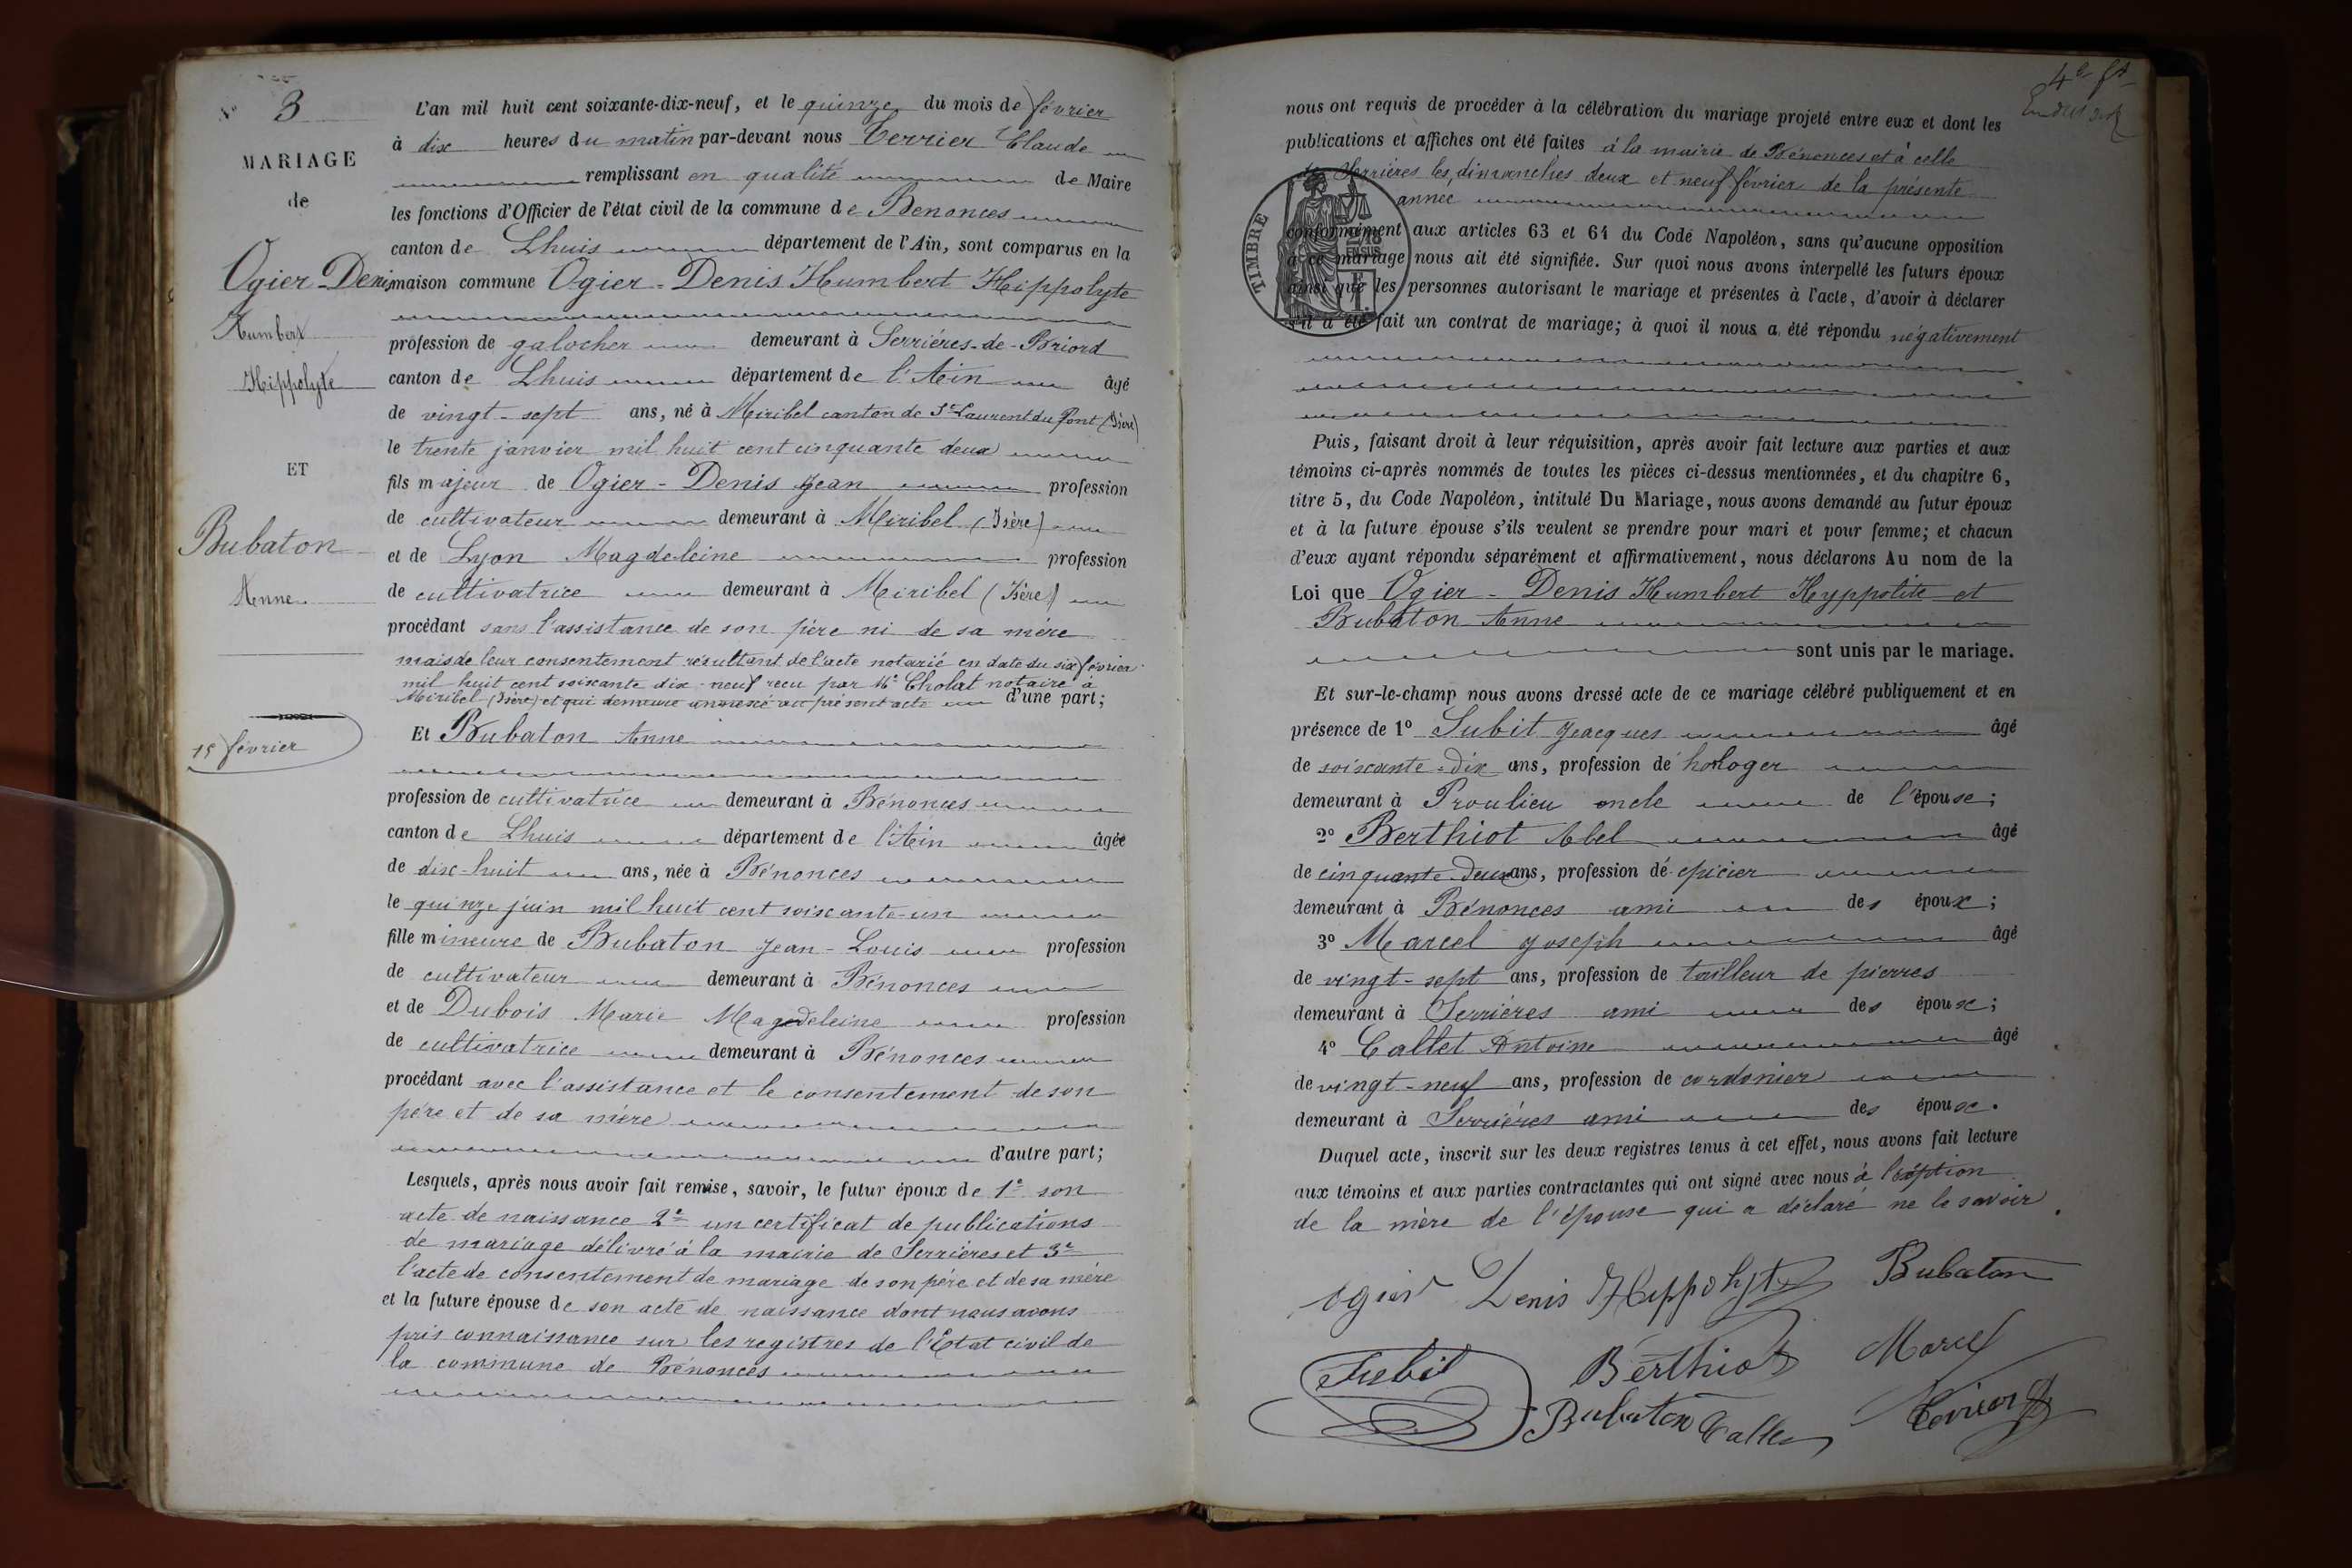 N° 3
MARIAGE
de
Ogier-Denis
Humbert
Hippolyte
ET
Bubaton
Anne
15 février
L'an mil huit cent soixante-dix-neuf, et le quinze du mois de février
à dix heures du matin par-devant nous Terrier Claude
remplissant en qualité de Maire
les fonctions d'Officier de l'état civil de la commune de Benonces
canton de Lhuis département de l'Ain, sont comparus en la
maison commune Ogier-Denis Humbert Hippolyte
profession de galocher demeurant à Serriéres-de-Briord
canton de Lhuis département de l'Ain âgé
de vingt-sept ans, né à Miribel canton de St Laurent du Pont (Isère)
le trente janvier mil huit cent cinquante deux
fils majeur de Ogier-Denis Jean profession
de cultivateur demeurant à Miribel (Isère)
et de Lyon Magdeleine profession
de cultivatrice demeurant à Miribel (Isère)
procédant sans l'assistance de son père ni de sa mère
mais de leur consentement résultant de l'acte notarié en date du six février
mil huit cent soixante dix-neuf reçu par Me Cholat notaire à
Miribel (Isère) et qui demeure annexé au présent acte d'une part;
Et Bubaton Anne
profession de cultivatrice demeurant à Bénonces
canton de Lhuis département de l'Ain âgée
de dix-huit ans, née à Bénonces
le quinze juin mil huit cent soixante-un
fille mineure de Bubaton Jean-Louis profession
de cultivateur demeurant à Bénonces
et de Dubois Marie Magedeleine profession
de cultivatrice demeurant à Bénonces
procédant avec l'assistance et le consentement de son
père et de sa mère
d'autre part;
Lesquels, après nous avoir fait remise, savoir, le futur époux de 1e son
acte de naissance 2e un certificat de publications
de mariage délivré à la mairie de Serrières et 3e
l'acte de consentement de mariage de son père et de sa mère
et la future épouse de son acte de naissance dont nous avons
pris connaissance sur les registres de l'Etat civil de
la commune de Bénonces
4e ft
nous ont requis de procéder à la célébration du mariage projeté entre eux et dont les
publications et affiches ont été faites à la mairie de Bénonces et à celle
de Serrières les dimanches deux et neuf février de la présente
année
TIMBRE
conformément aux articles 63 et 64 du Code Napoléon, sans qu'aucune opposition
à ce mariage nous ait été signifiée. Sur quoi nous avons interpellé les futurs époux
ainsi que les personnes autorisant le mariage et présentes à l'acte, d'avoir à déclarer
s'il a été fait un contrat de mariage; à quoi il nous a été répondu négativement
Puis, faisant droit à leur réquisition, après avoir fait lecture aux parties et aux
témoins ci-après nommés de toutes les pièces ci-dessus mentionnées, et du chapitre 6,
titre 5, du Code Napoléon, intitulé Du Mariage, nous avons demandé au futur époux
et à la future épouse s'ils veulent se prendre pour mari et pour femme; et chacun
d'eux ayant répondu séparément et affirmativement, nous déclarons Au nom de la
Loi que Ogier-Denis Humbert Hyppolite et
Bubaton Anne
sont unis par le mariage.
Et sur-le-champ nous avons dressé acte de ce mariage célébré publiquement et en
présence de 1° Subit Jeacques âgé
de soixante-dix ans, profession de horloger
demeurant à Proulieu oncle de l'épouse;
2° Berthiot Abel âgé
de cinquante-deux ans, profession de épicier
demeurant à Bénonces ami des époux;
3° Marcel Joseph âgé
de vingt-sept ans, profession de tailleur de pierres
demeurant à Serrières ami des époux;
4° Callet Antoine âgé
de vingt-neuf ans, profession de cordonier
demeurant à Serrières ami des époux.
Duquel acte, inscrit sur les deux registres tenus à cet effet, nous avons fait lecture
aux témoins et aux parties contractantes qui ont signé avec nous à l'éxéption
de la mère de l'épouse qui a déclaré ne le savoir.
ogier Denis Hippolyte Bubaton
Subit Berthiot Marcel
Bubaton Callet Terrier